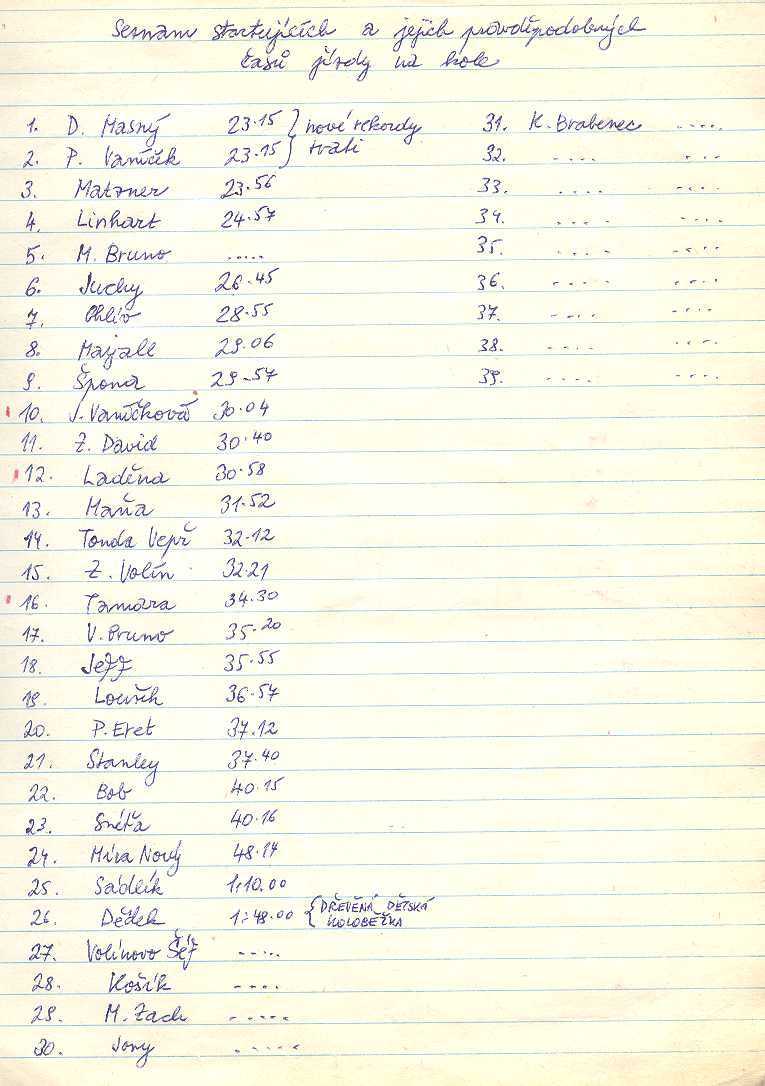 Seznam startujících a jejich pravděpodobných
časů jízdy na kole
1. D. Masný 23.15 } nové rekordy
2. P. Vaníček 23.15 } trati
3. Matzner 23.56
4. Linhart 24.57
5. M. Bruno .....
6. Juchy 26.45
7. 28.55
8. Mayall 29.06
9. Špona 29-57
10. J. Vaníčková 30.04
11. Z. David 30.40
12. Laděna 30.58
13. Maňa 31.52
14. Tonda Vepř 32.12
15. Z. Volín 32.21
16. Tamara 34.30
17. V. Bruno 35.20
18. Jeff 35.55
19. 36.57
20. P. Eret 37.12
21. Stanley 37.40
22. Bob 40.15
23. Sněťa 40.16
24. Míra Nový 48.14
25. Sádlík 1:10.00
26. Dědek 1:48.00 { DŘEVĚNÁ DĚTSKÁ
KOLOBĚŽKA
27. Volínovo Šéf -----
28. Košík ----
29. M. Zach -----
30. Jony -----
31. K. Brabenec ....
32. .... ...
33. .... ....
34. .... ....
35. .... ....
36. .... ....
37. .... ....
38. .... ....
39. .... ....